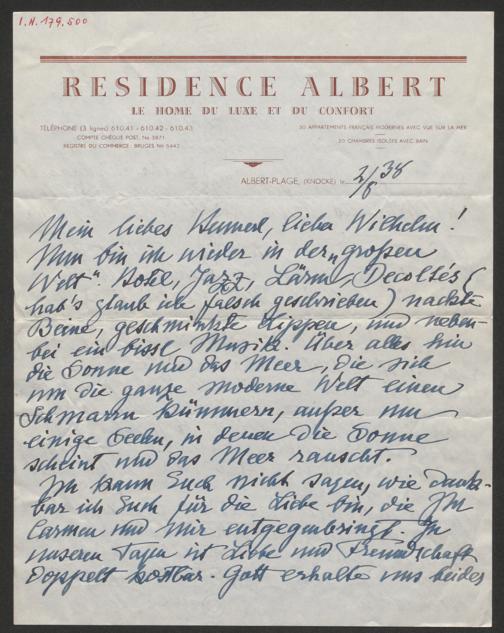 I.N. 179.500
RESIDENCE ALBERT
LE HOME DU LUXE ET DU CONFORT
TÉLÉPHONE (3 lignes) 610.41 - 610.42 - 610.43
COMPTE CHÈQUE POST. No 5871
REGISTRE DU COMMERCE : BRUGES No 5442
50 APPARTEMENTS FRANÇAIS MODERNES AVEC VUE SUR LA MER
20 CHAMBRES ISOLÉES AVEC BAIN
ALBERT-PLAGE, (KNOCKE) le 2/8 38
Mein liebes lieber Wilhelm!
Nun bin ich wieder in der „großen
Welt". Hotel, Jazz, Lärm, Decoltés (
hab's glaub ich falsch geschrieben) nackte
Beine, geschminkte Lippen, und neben-
bei ein bissl Musik. Über alles hin
die Sonne und das Meer, die sich
um die ganze moderne Welt einen
Schmarrn kümmern, außer um
einige Seelen, in denen die Sonne
scheint und das Meer rauscht.
Ich kann Euch nicht sagen, wie dank-
bar ich Euch für die Liebe bin, die Ihr
Carmen und mir entgegenbringt. In
unseren Tagen ist Liebe und Freundschaft
doppelt kostbar. Gott erhalte uns beides